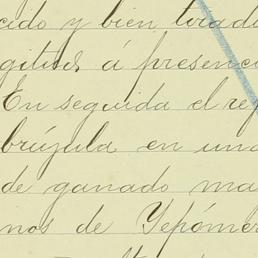 cido y bien tirado
gitud, á presenci
En seguida el rep
brújula en una
de ganado ma
nos de Yepómer